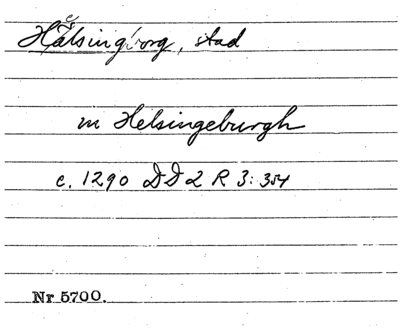 Hälsingborg, stad
in Helsingeburgh
c. 1290 DD 2 R 3: 354
Nr 5700.